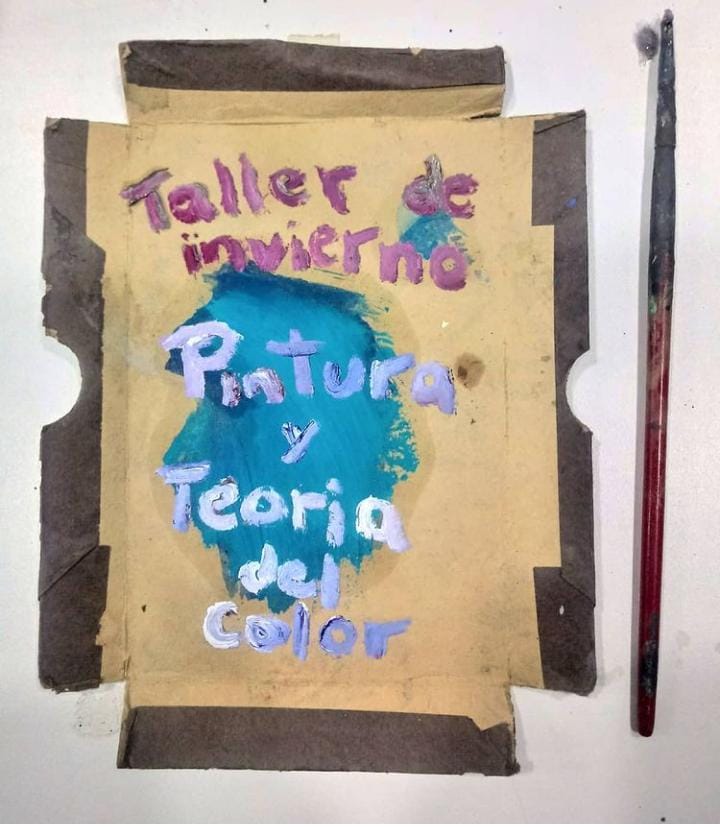 Taller de
invierno
Pintura
y
Teoria
del
Color